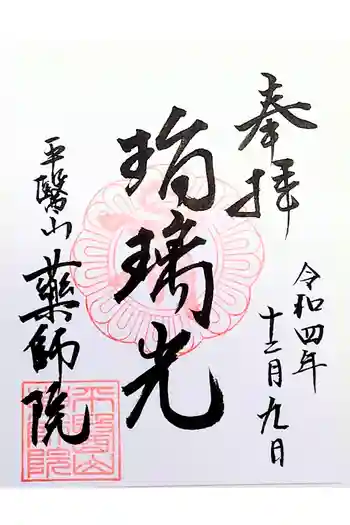 奉拝
令和四年
十二月九日
瑠璃光
平醫山
薬師院